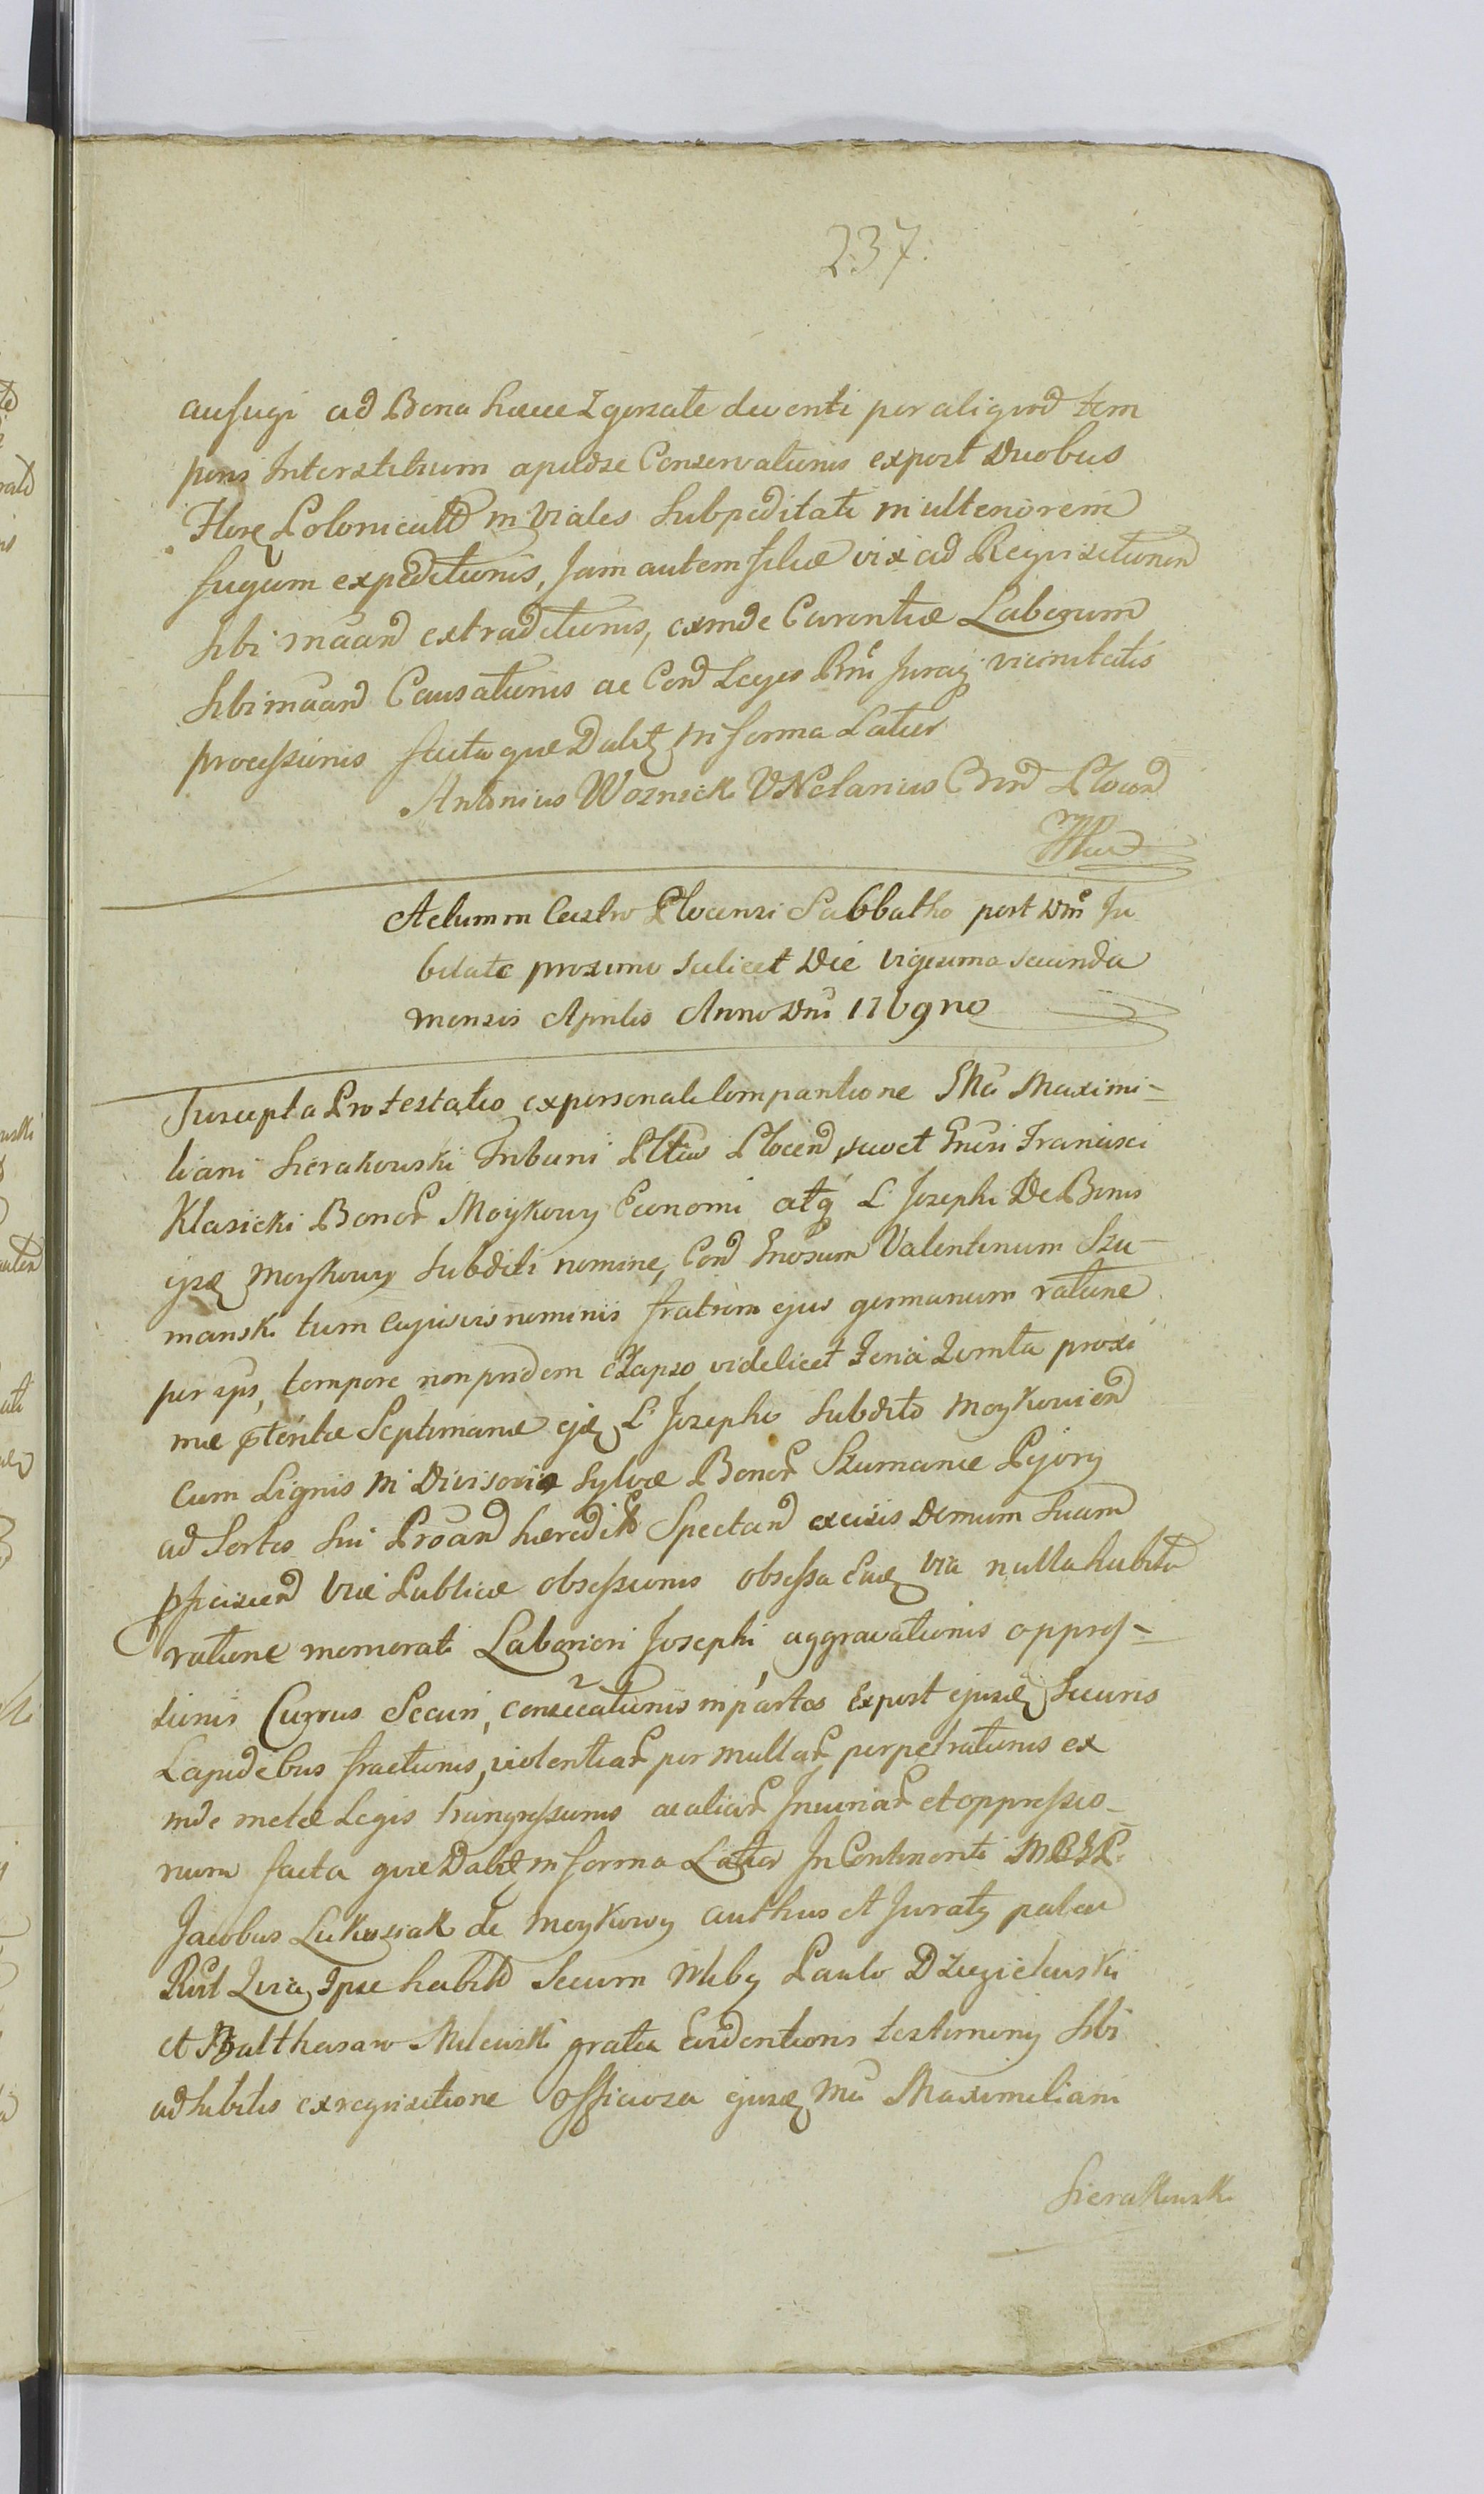 237.
aufugi ad Bona haec Zgorzate deventi per aliquod tem
poris Interstitium apud se Conservationis expost Duobus
Flore Polonicalb in Viales Subpeditati in ulteriorem
fugam expeditionis, Jam autem filiae vix ad Requisitionem
sibi maand extraditionis, exinde Carentiae Laborum
sibi maand Causationis ac Cond Leges Rni Juraq vicinitatis
processionis facta quae Dabit in forma Latior
Antonius Woznick VNotarius Cond Plocend
mp
Actum in Castro Plocensi Sabbatho post Dni Ju
bilate proximo scilicet Die vigesima secunda
mensis Aprilis Anno Dni 1769no
Suscepta Protestatio ex personali Comparitione Mci Maximi-
liani Sierakowski Tribuni Pltus Plocend suo et Gnrsi Francisci
Klasicki Bonor Moykowy Economi atq L Josephi De Bonis
ijsd Moykowy Subditi nomine, Cond Gnosum Valentinum Szu-
manski tum cujusvis nominis fratrem ejus germanum ratione
per ips, tempore non pridem elapso videlicet Feria Quinta proxi
mae pteritae Septimanae ejd L Josepho Subdito Moykoviend
cum Lignis in Divisoria Sylvae Bonor Szumanie Pejory
ad Sortes sui Proand haeredit Spectand excisis Domum suam
pficiscend Viae Publicae obsessionis obsessa Ead via nulla habita
ratione memorati Laboriosi Josephi aggravationis oppres-
sionis Currus Securi, consecationis in partes Expost ejusd Securis
Lapidibus fractionis, violentiar per multar perpetrationis ex
inde metae Legis transgressionis ac aliar Injuriar et oppressio-
num facta quae Dabit in forma Latior In Continenti MRGP.
Jacobus Lukasiak de Moykowy authus et Juratq palam
Rlt Quia Ipse habito Secum Nbilibq Paulo Dzięgielewski
et Balthasaro Milewski gratia Evidentioris testimony sibi
adhibitis ex requisitione Officiosa ejusd Mci Maximiliani
Sierakowski